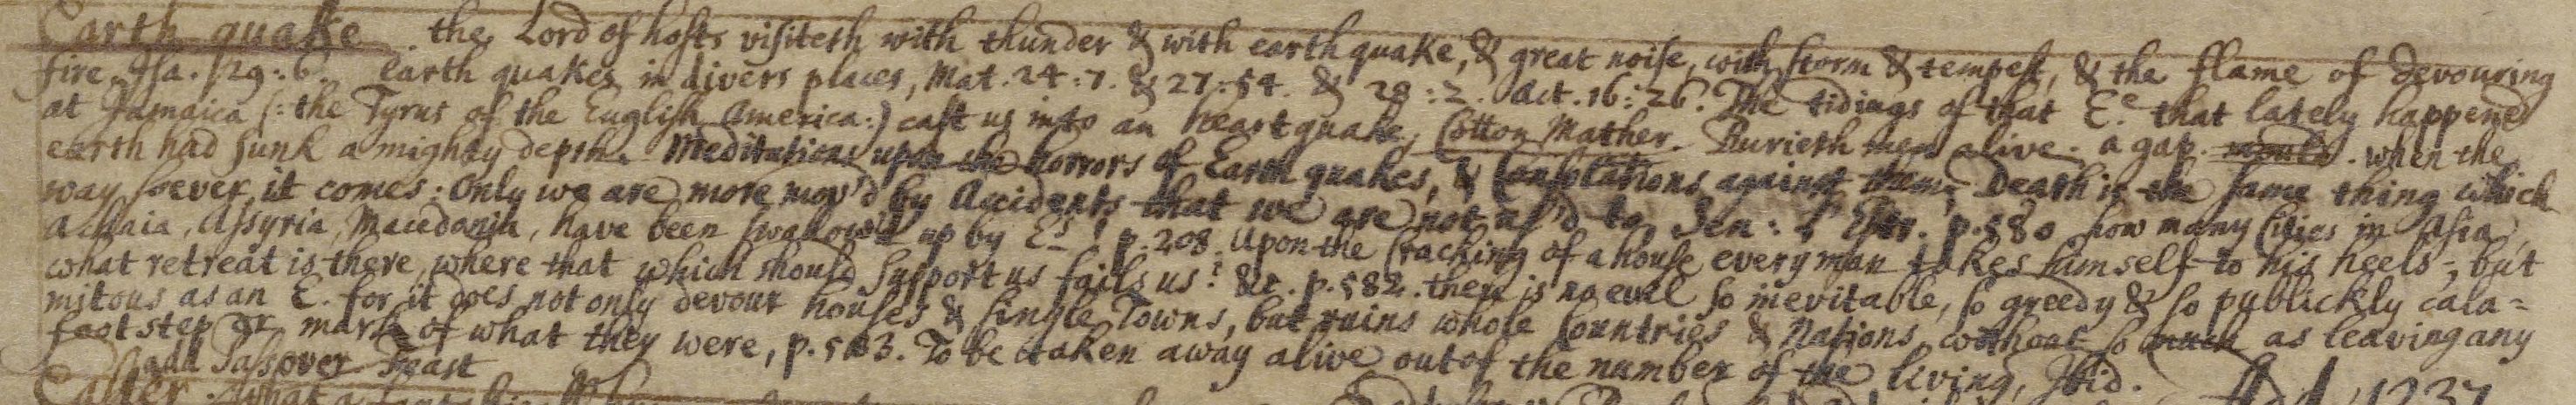 Earth quake. the Lord of hosts visiteth with thunder & with earth quake, & great noise, with storm & tempest, & the flame of devouring
fire. Isa. 29:6. Earth quakes in divers places, Mat. 24:7. & 27:54. & 28:2. Act. 16:26. The tidings of that E.e that lately happened
at Jamaica (: the Tyrus of the English America:) cast us into an heart quake, Cotton Mather. Burieth men alive. a gap. when the
earth had sunk a mighty depth. Meditations upon the horrors of Earth quakes, & Consolations against them; Death is the same thing which
way soever it comes: Only we are more mov'd by Accidents that we are not us'd to, Sen: p. 580 how many Cities in Asia,
Achaia, Assyria, Macedonia, have been swallow'd up by Es? p. 208. Upon the Cracking of a house every man takes himself to his heels; but
what retreat is there, where that which should support us fails us? &c. p. 582. there is no evil so inevitable, so greedy & so publickly cala=
mitous as an E. for it does not only devour houses & single Towns, but ruins whole Countries & Nations, without so much as leaving any
foot step or mark of what they were, p. 583. To be taken away alive out of the number of the living, Ibid.
add Passover Feast
Easter. what a 1237